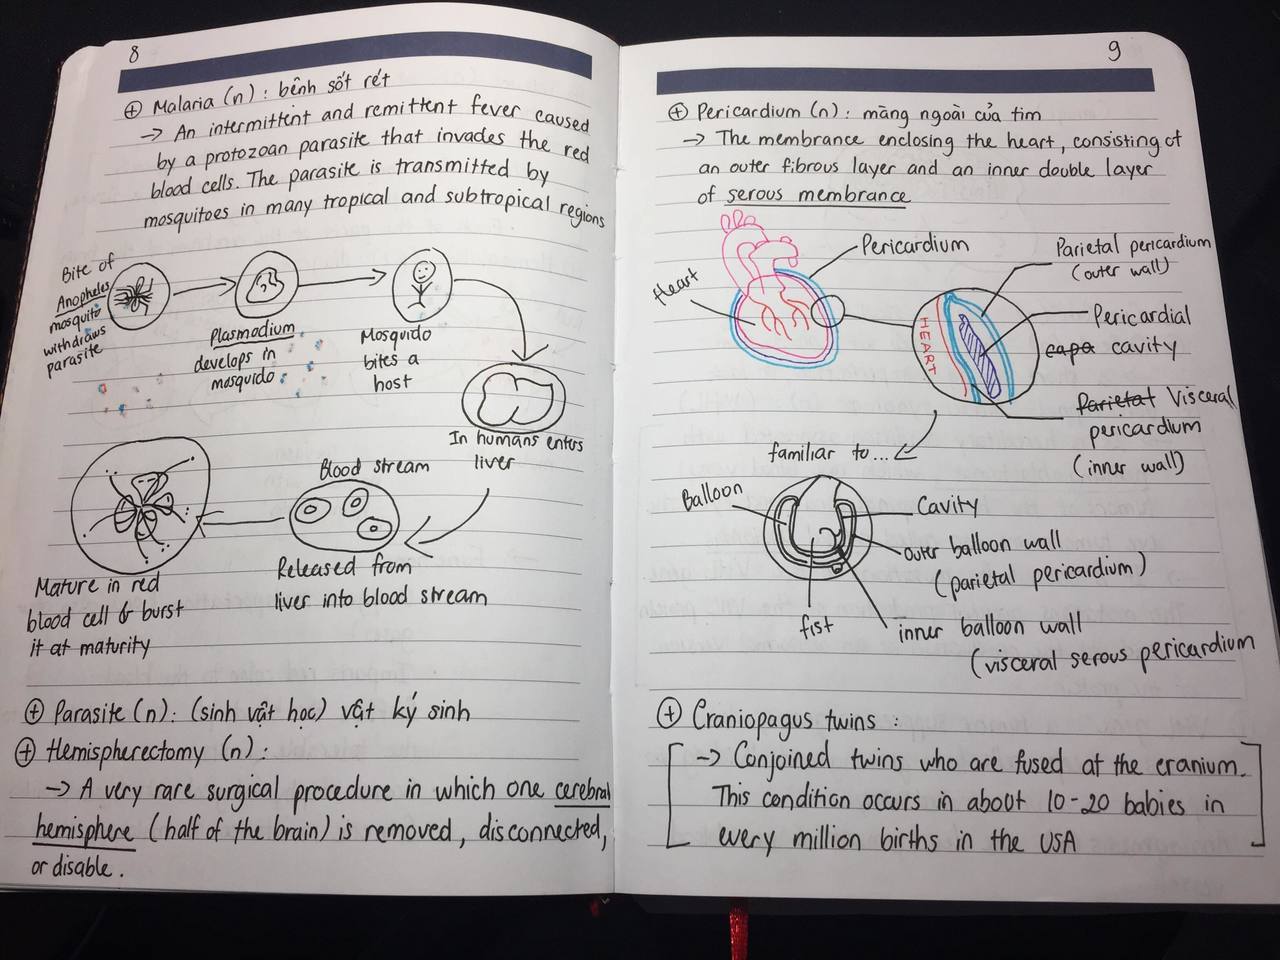 8
⊕ Malaria (n) : bệnh sốt rét
→ An intermittent and remittent fever caused
by a protozoan parasite that invades the red
blood cells. The parasite is transmitted by
mosquitoes in many tropical and subtropical regions
Bite of
Anopheles
mosquito
withdraws
parasite
Plasmodium
develops in
mosquido
Mosquido
bites a
host
In humans enters
liver
Blood stream
Released from
liver into blood stream
Mature in red
blood cell & burst
it at maturity
⊕ Parasite (n) : (sinh vật học) vật ký sinh
⊕ Hemispherectomy (n) :
→ A very rare surgical procedure in which one cerebral
hemisphere (half of the brain) is removed, disconnected,
or disable.
9
⊕ Pericardium (n) : màng ngoài của tim
→ The membrance enclosing the heart, consisting of
an outer fibrous layer and an inner double layer
of serous membrance
Heart
Pericardium
HEART
Parietal pericardium
(outer wall)
Pericardial
capa cavity
Parietat Visceral
pericardium
(inner wall)
familiar to...
Balloon
Cavity
outer balloon wall
(parietal pericardium)
fist
inner balloon wall
(visceral serous pericardium
⊕ Craniopagus twins :
→ Conjoined twins who are fused at the cranium.
This condition occurs in about 10-20 babies in
every million births in the USA